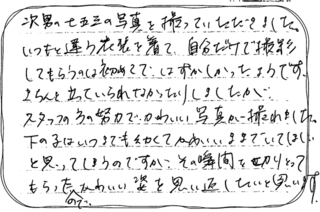 次男の七五三の写真を撮っていただきました。
いつもと違う衣装を着て、自分だけで撮影
してもらうのは初めてで、はずかしかったようです。
きちんと立っていられなかったりしましたが、
スタッフさんの努力でかわいい写真が撮れました。
下の子はいつまでも幼くてかわいいままでいてほしい
と思ってしまうのですが、その瞬間を切りとって
もらったので、かわいい姿を思い返したいと思います。